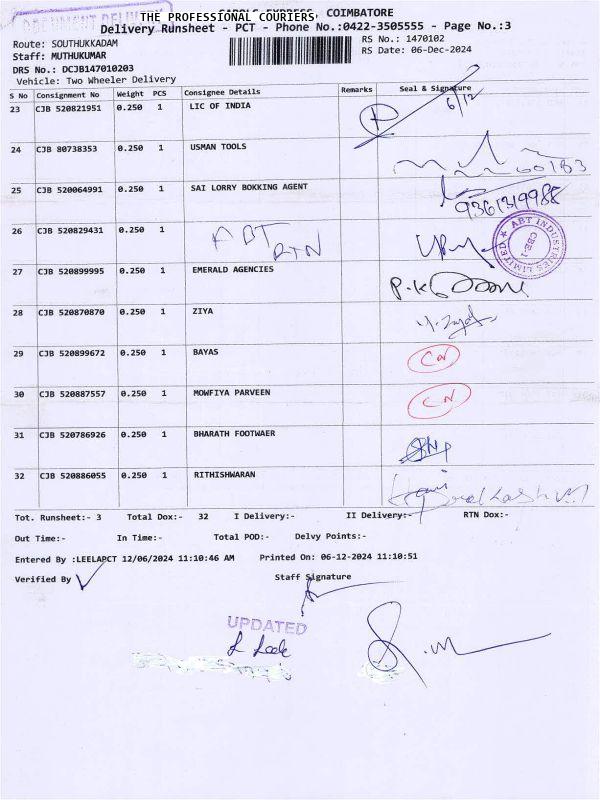 DOCUMENT DELIVERY
THE PROFESSIONAL COURIERS
EXPRESS, COIMBATORE
Delivery Runsheet - PCT - Phone No.:0422-3505555 - Page No.:3
Route: SOUTHUKKADAM
RS No.: 1470102
Staff: MUTHUKUMAR
RS Date: 06-Dec-2024
DRS No.: DCJB147010203
Vehicle: Two Wheeler Delivery
S No Consignment No Weight PCS Consignee Details Remarks Seal & Signature
23 CJB 520821951 0.250 1 LIC OF INDIA 6/12
24 CJB 80738353 0.250 1 USMAN TOOLS
25 CJB 520064991 0.250 1 SAI LORRY BOKKING AGENT
26 CJB 520829431 0.250 1 ABT RTN
ABT INDUSTRIES LIMITED CBE-1
27 CJB 520899995 0.250 1 EMERALD AGENCIES
28 CJB 520870870 0.250 1 ZIYA
29 CJB 520899672 0.250 1 BAYAS CN
30 CJB 520887557 0.250 1 MOWFIYA PARVEEN CN
31 CJB 520786926 0.250 1 BHARATH FOOTWAER
32 CJB 520886055 0.250 1 RITHISHWARAN
Tot. Runsheet:- 3 Total Dox:- 32 I Delivery:- II Delivery:- RTN Dox:-
Out Time:- In Time:- Total POD:- Delvy Points:-
Entered By :LEELAPCT 12/06/2024 11:10:46 AM Printed On: 06-12-2024 11:10:51
Verified By Staff Signature
UPDATED